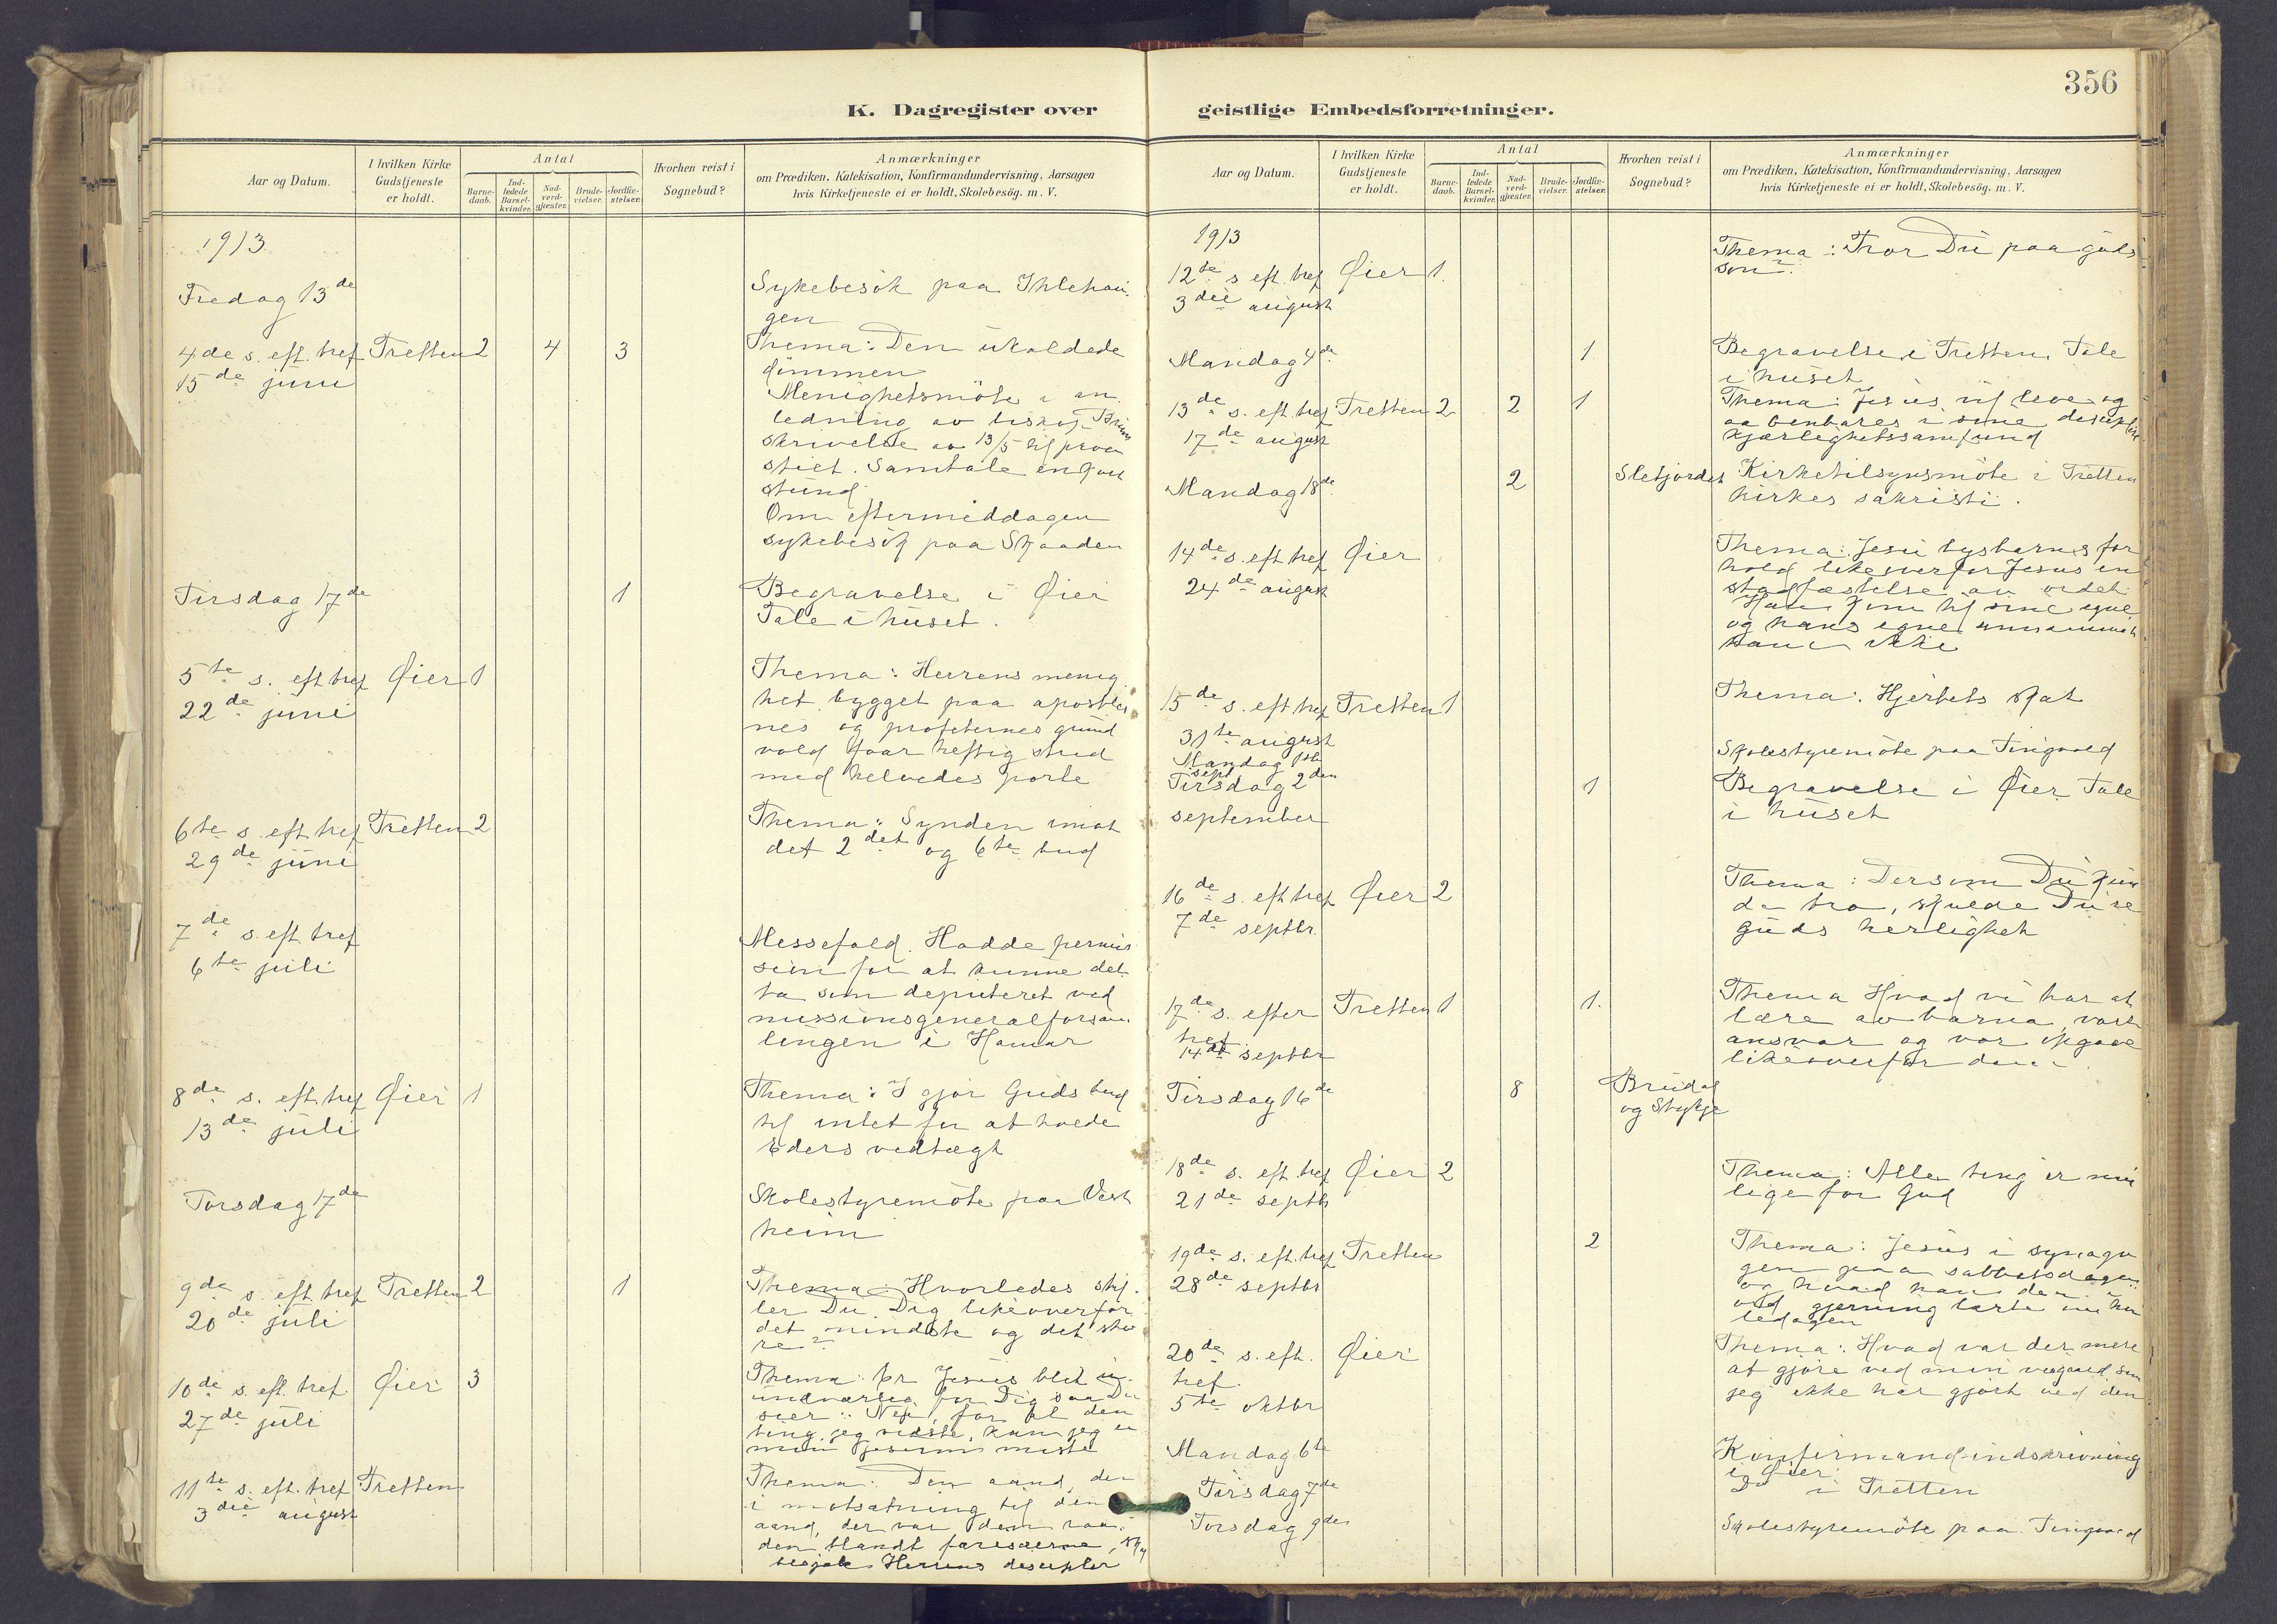 356
K. Dagregister over geistlige Embedsforretninger.
Aar og Datum.
I hvilken Kirke Gudstjeneste er holdt.
Antal
Barnedaab.
Indledede Barselkvinder.
Nadverdgjæster.
Brudevielser.
Jordfæstelser.
Hvorhen reist i Sognebud?
Anmærkninger
om Prædiken, Katekisation, Konfirmandundervisning, Aarsagen
hvis Kirketjeneste ei er holdt, Skolebesøg. m. V.
1913
Fredag 13de
Sykebesök paa Ihlehau-
gen
4de s. eft. tref. Tretten 2 4 3
15de juni
Thema: Den ukaldede
dommen
Menighetsmöte i an
ledning av biskop
skrivelse av 13/5 til prov
stiet. Samtale en god
stund
Om eftermiddagen
sykebesök paa Skaaden
Tirsdag 17de 1
Begravelse i Øier
Tale i huset.
5te s. eft tref Øier 1
22de juni
Thema: Herrens menig
het bygget paa apostler
nes og profeternes grund
vold staar heftig strid
med helvedes porte
6te s. eft tref Tretten 2
29de juni
Thema: Synden imot
det 2det og 6te bud
7de s. eft. tref
6te juli
Messefald. Hadde permis
sion for at kunne del
ta som deputeret ved
missionsgeneralforsam
lingen i Hamar
8de s. eft. tref Øier 1
13de juli
Thema: I gjör Guds bud
til intet for at holde
Eders vedtægt
Torsdag 17de
Skolestyremöte paa Vest
heim
9de s. eft. tref Tretten 2 1
20de juli
Thema: Hvorledes stil-
ler Du Dig likeoverfor
det mindste og det stör
re?
10de s. eft. tref Øier 3
27de juli
Thema: Er Jesus blit
undværlig for Dig saa Du
sier: Nei, for al den
ting jeg vidste, kan jeg ei
min Jesum miste
11te s. eft. tref Tretten
3die august
Thema: Den aand, der
i motsætning til den
aand, der var den raa-
den blandt farisæerne,
Herrens disciple
Aar og Datum.
I hvilken Kirke Gudstjeneste er holdt.
Antal
Barnedaab.
Indledede Barselkvinder.
Nadverdgjæster.
Brudevielser.
Jordfæstelser.
Hvorhen reist i Sognebud?
Anmærkninger
om Prædiken, Katekisation, Konfirmandundervisning, Aarsagen
hvis Kirketjeneste ei er holdt, Skolebesög. m. V.
1913
12te s eft. tref Øier 1.
3die august
Thema: Tror Du paa guds
sön?
Mandag 4de 1
Begravelse i Tretten. Tale
i huset
13de s. eft. tref Tretten 2 2 1
17de august
Thema: Jesus vil leve og
aabenbares i sine disciples
kjærlighetssamfund
Mandag 18de 2 Sletjordet
Kirketilsynsmöte i Tretten
kirkes sakristi.
14de s. eft tref Øier
24de august
Thema: Jesu bysbarns for
hold likeoverfor Jesus en
stadfæstelse av ordet:
Han kom til sine egne
og hans egne annammet
ham ikke
15de s. eft tref Tretten 1
31te august
Thema: Hjertets skat
Mandag 1ste
sept
Skolestyremöte paa Tingvold
Tirsdag 2den 1
september
Begravelse i Øier Tale
i huset
16de s. eft tref Øier 2
7de septbr.
Thema: Dersom Du kun
de tro, skulde Du se
guds herlighet
17de s. efter Tretten 1 1.
tref
14de septbr
Thema Hvad vi har at
lære av barna, vort
ansvar og vor opgave
likeoverfor dem
Tirsdag 16de 8 Brudal
og Stykje
18de s. eft. tref Øier 2
21de septbr
Thema: Alle ting er mu
lige for Gud
19de s. eft. tref Tretten 2
28de septbr
Thema: Jesus i synago
gen paa sabbatsdagen
og hvad han
ved gjerning lærte om hvi
ledagen
20de s. eft. Øier
tref.
5te oktbr
Thema: Hvad var der mere
at gjöre ved min vingaard som
jeg ikke har gjort ved den
Mandag 6te
Konfirmand-indskrivning
i Øier.
Tirsdag 7de
Do i Tretten
Torsdag 9de
Skolestyremöte paa Tingvold